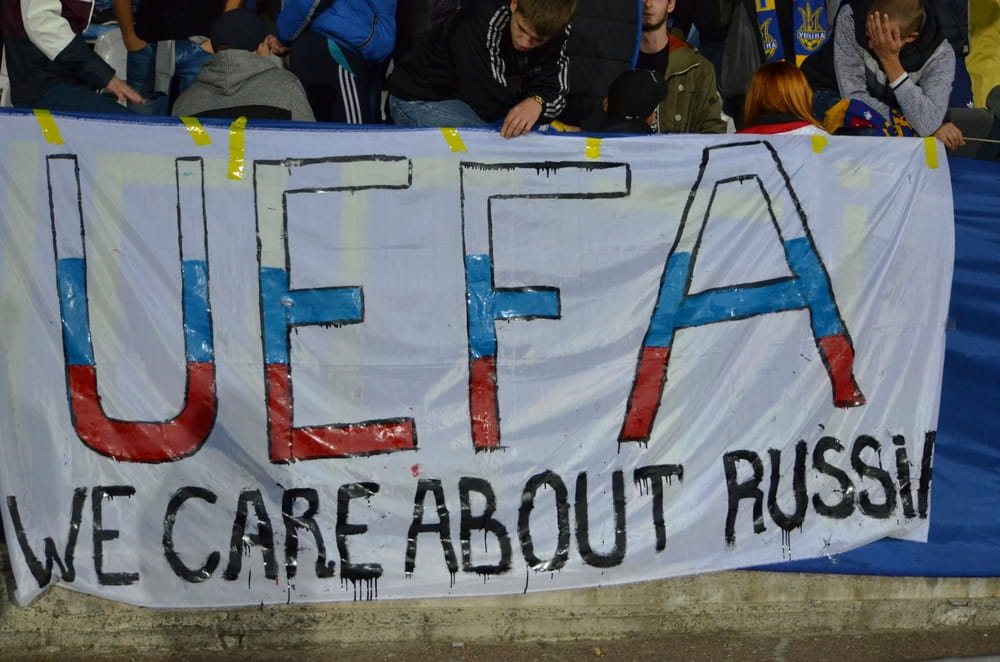 УКРАЇНА
UEFA
WE CARE ABOUT RUSSIA